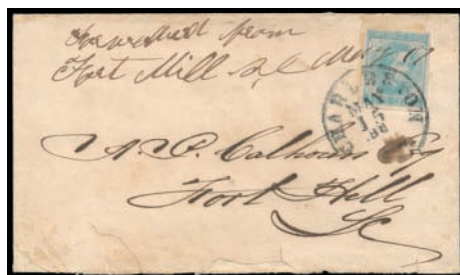 Forwarded from
Fort Mill S.C May 17
CHARLESTON
MAY
15
A.P. Calhoun Esq
Fort Hill
SC